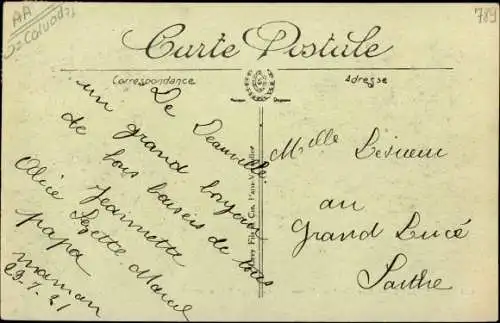 AA
Calvados
789
Carte Postale
Correspondance
Adresse
De Deauville
un grand bonjour
de bons baisers de tous
Jeannette
Alice Lisette Marcel
papa
maman
29-7-21
Melle
au
Grand Lucé
Sarthe